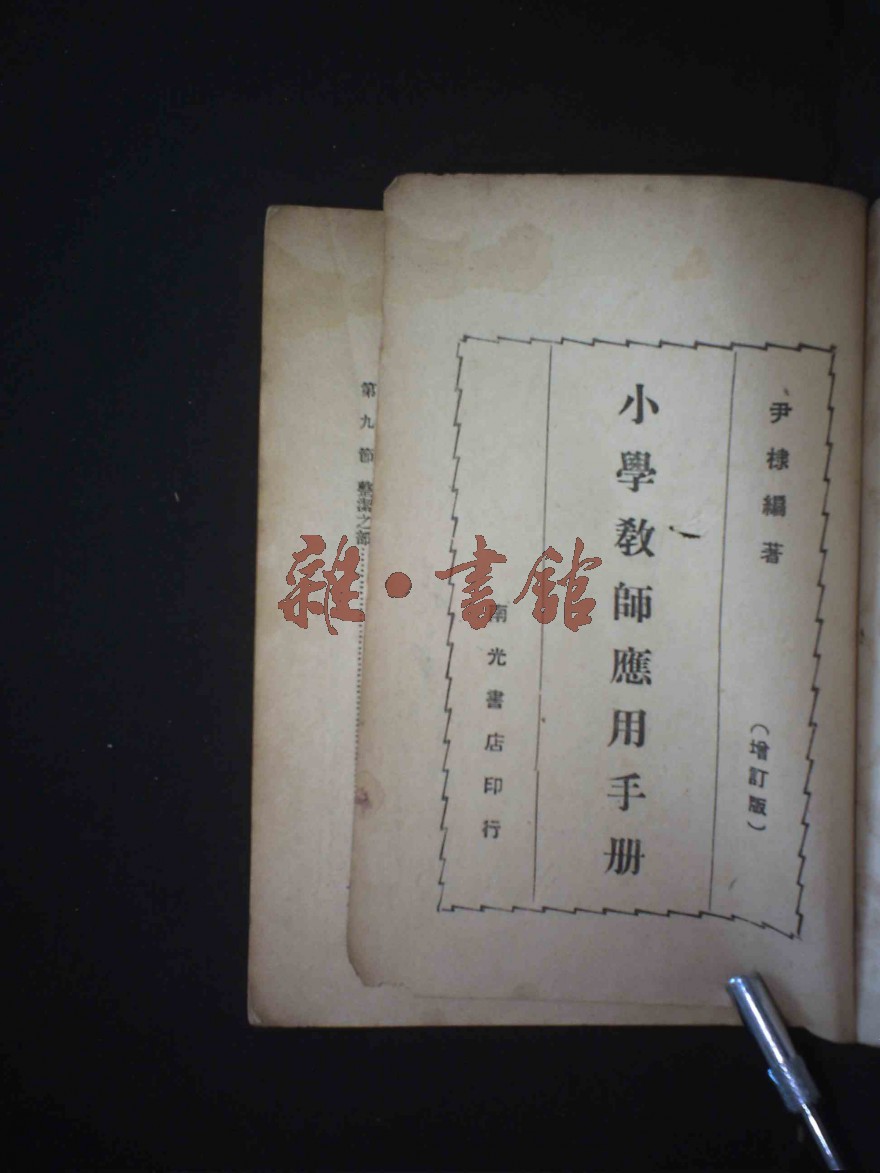 尹棣編著
（增訂版）
小學教師應用手册
南光書店印行
第九節 整潔之部
雜·書館